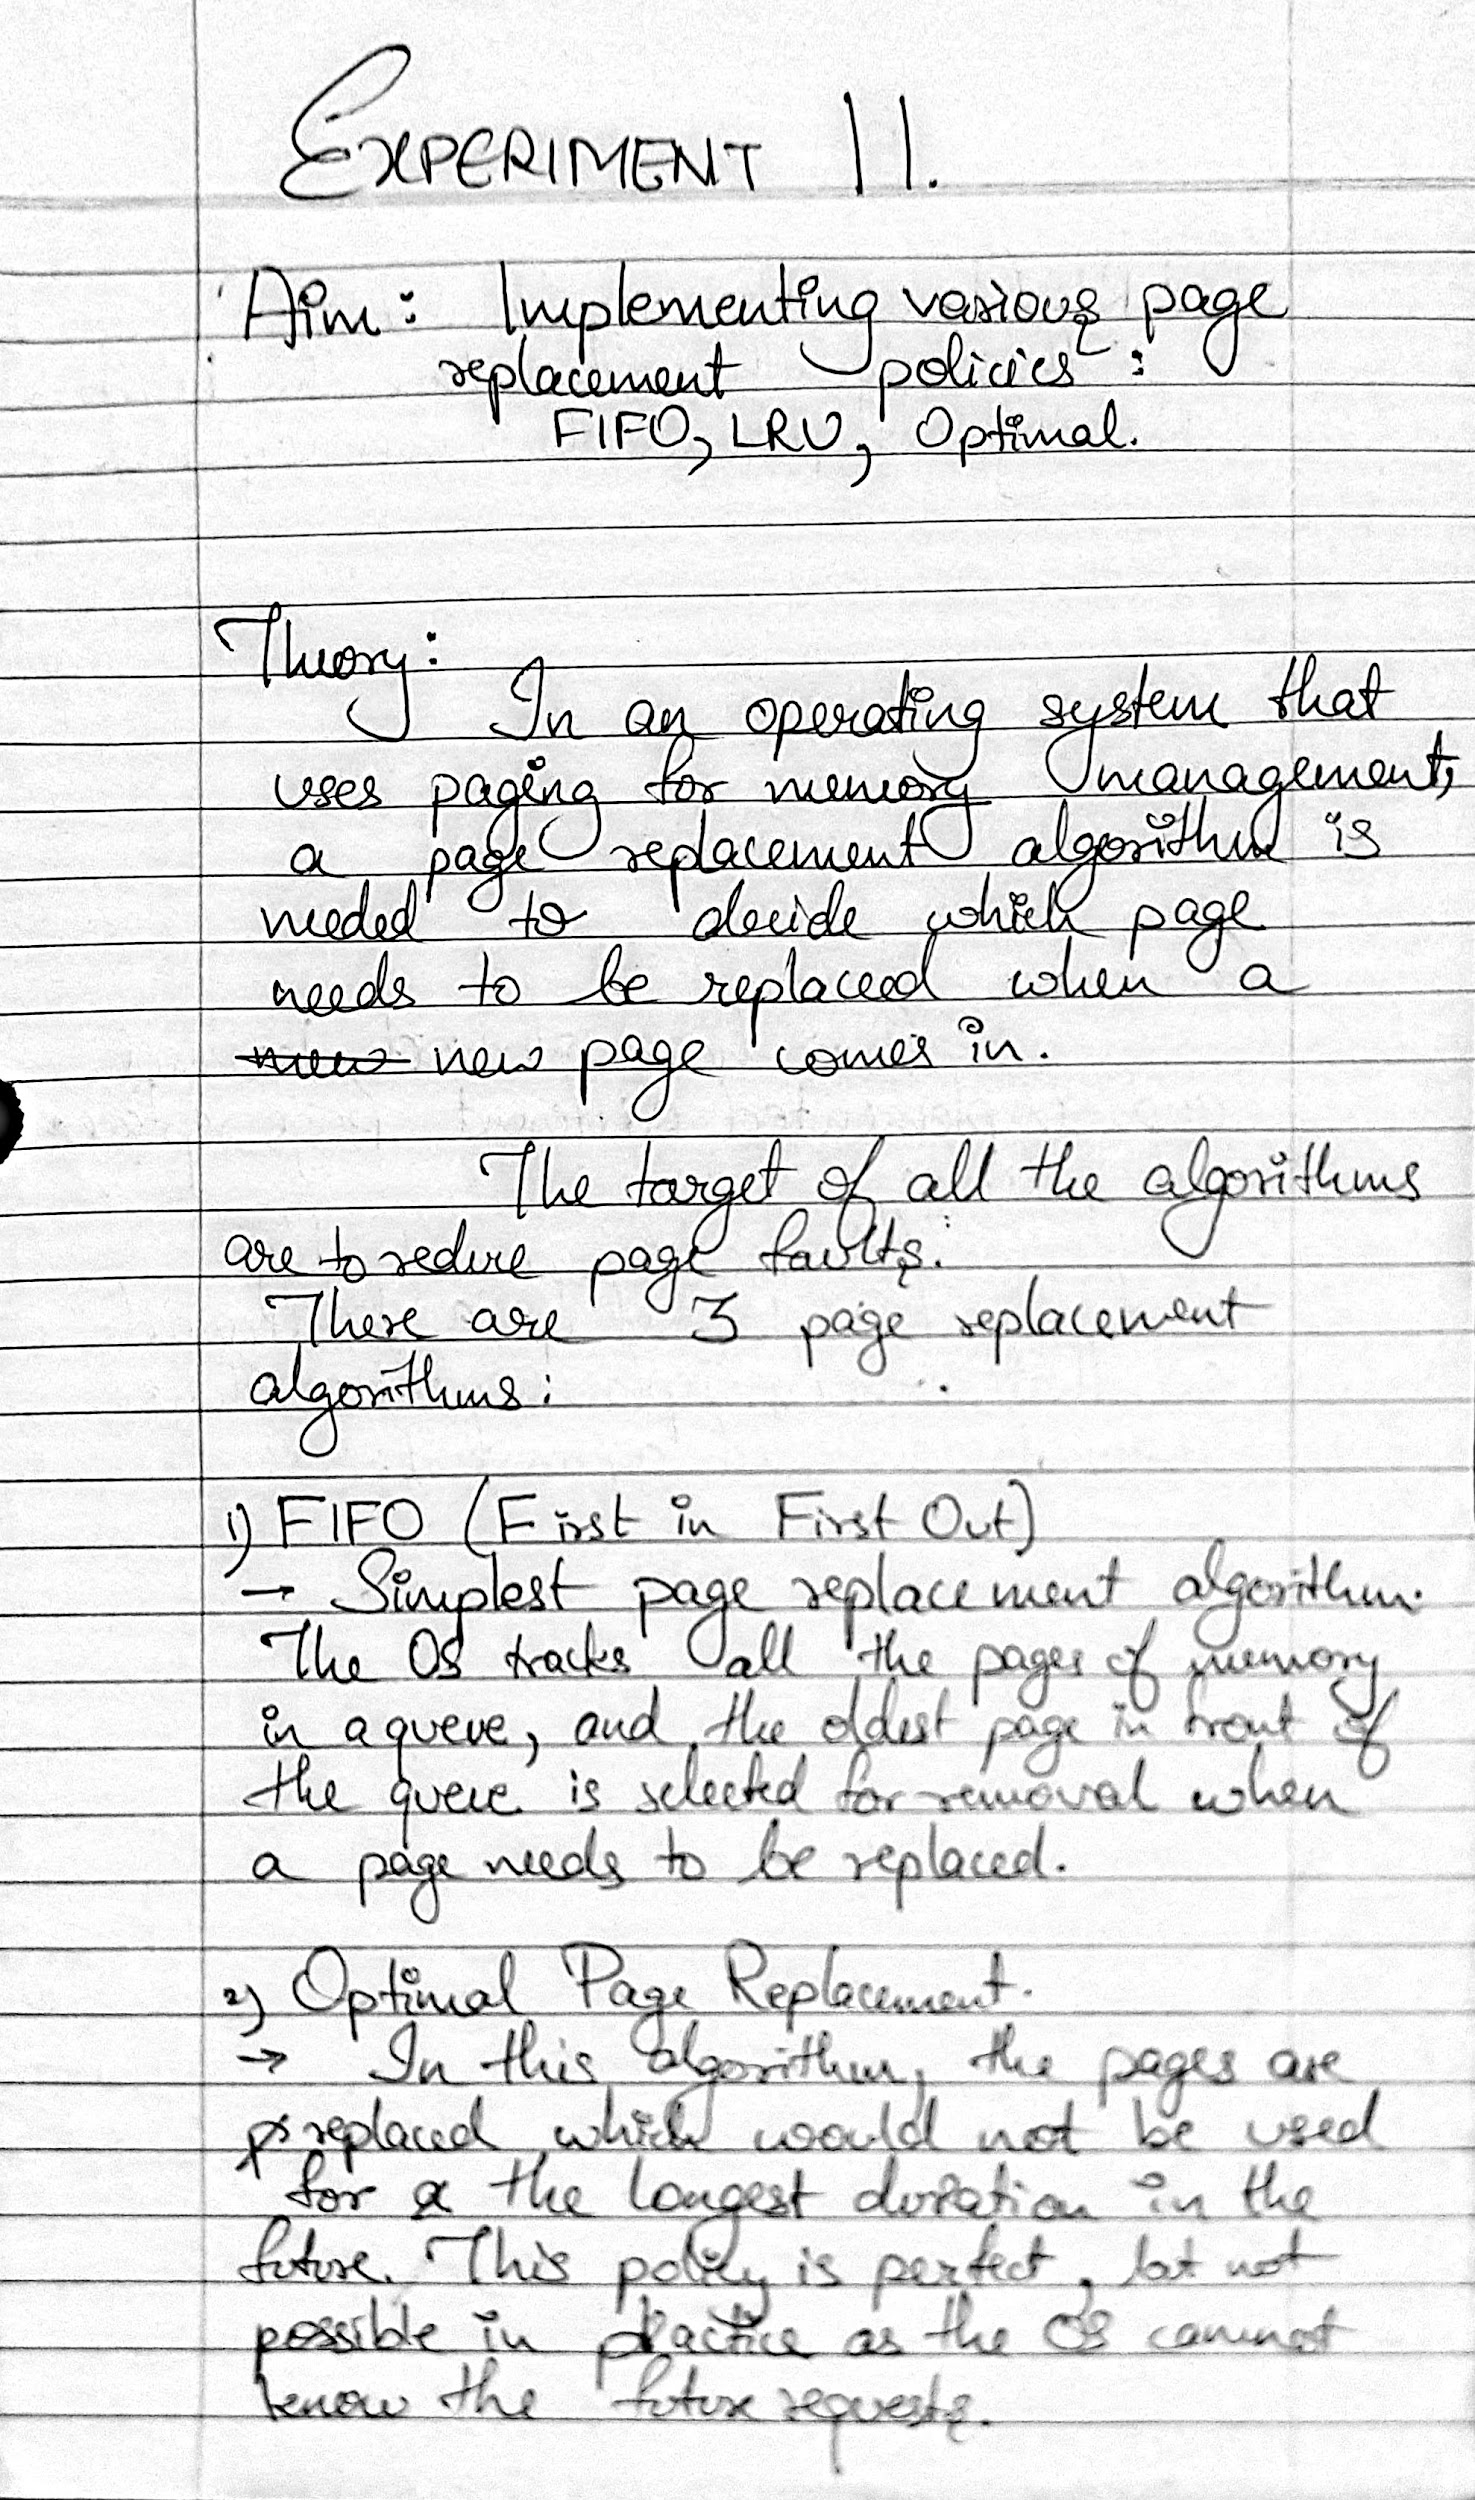 EXPERIMENT 11.
Aim: Implementing various page
replacement policies:
FIFO, LRU, Optimal.
Theory:
In an operating system that
uses paging for memory management,
a page replacement algorithm is
needed to decide which page
needs to be replaced when a
new page comes in.
The target of all the algorithms
are to reduce page faults.
There are 3 page replacement
algorithms:
1) FIFO (First in First Out)
→ Simplest page replacement algorithm.
The OS tracks all the pages of memory
in a queue, and the oldest page in front of
the queue is selected for removal when
a page needs to be replaced.
2) Optimal Page Replacement.
→ In this algorithm, the pages are
replaced which would not be used
for the longest duration in the
future. This policy is perfect, but not
possible in practice as the OS cannot
know the future requests.